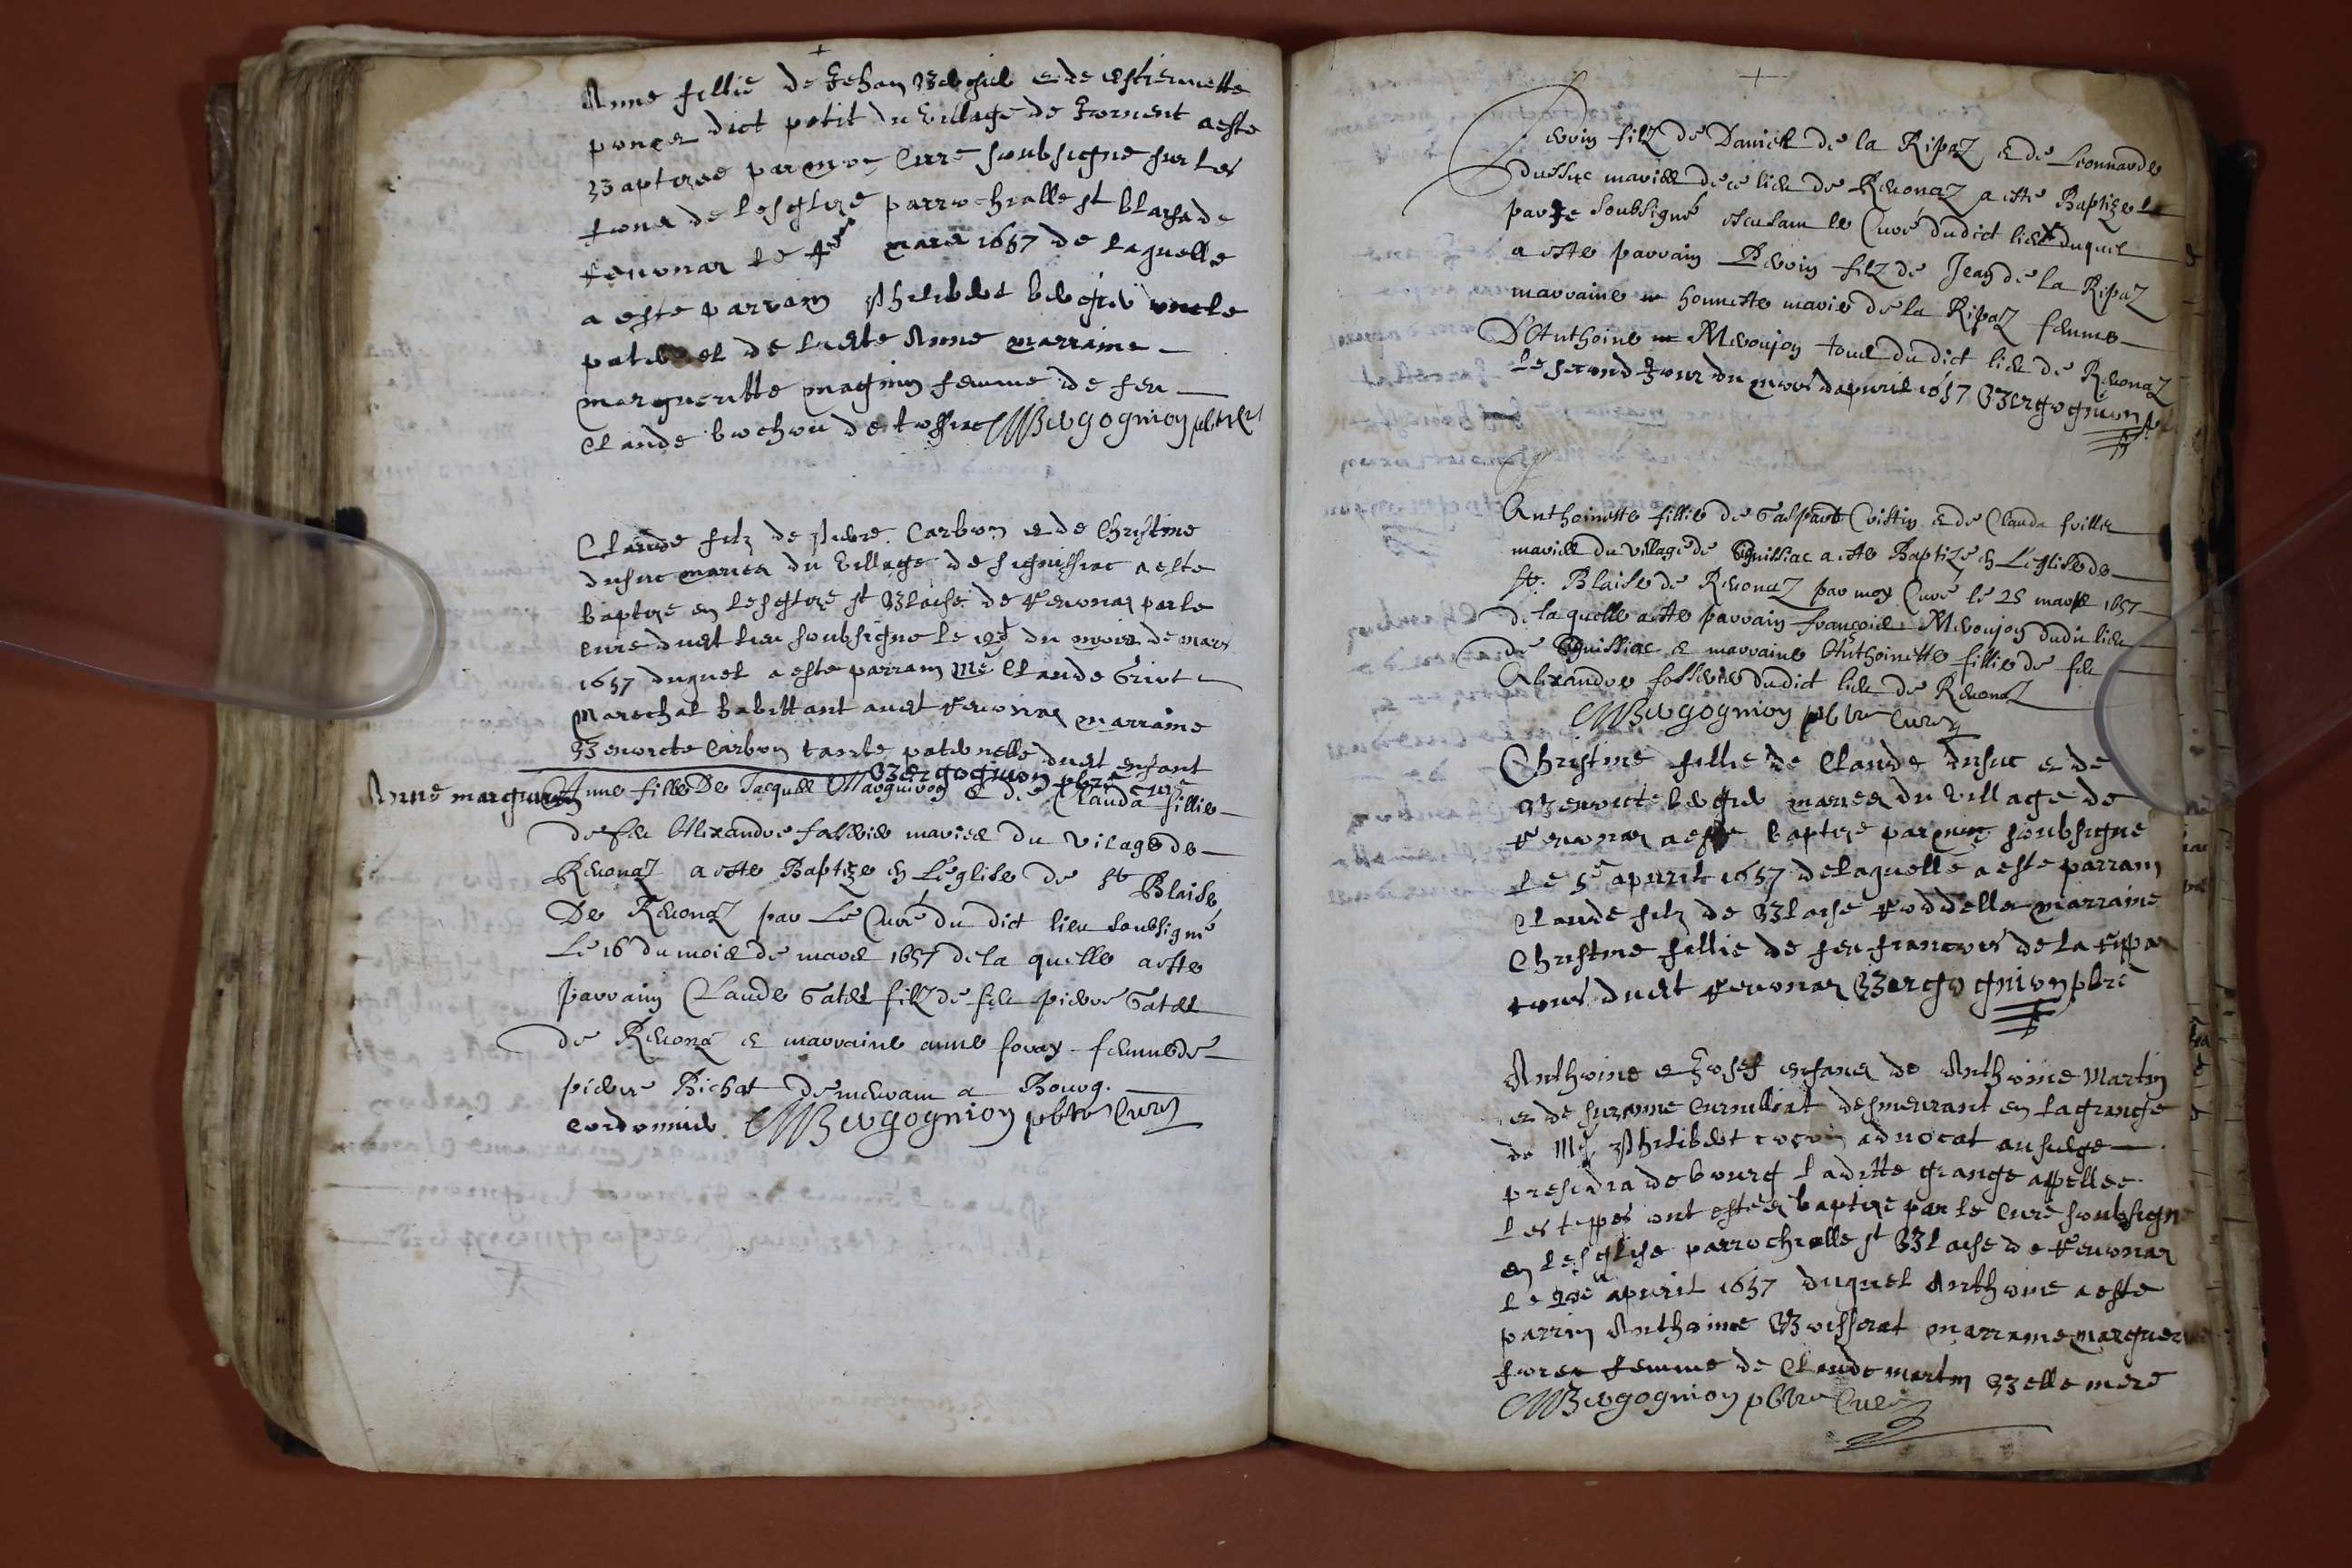 Anne fillie de Jehan Bergier et de Estiennette
ponce dict petit du village de Jornent a esté
Baptizee par moy Curé soubsigné sur les
fons de lesglize parrochialle st Blayse de
Revonas le 4e mars 1657 de laquelle
a esté parrain Philibert bergier oncle
paternel de ladte Anne marraine
margueritte magnin femme de feu
Claude bochon de tossiat Bergognion pbr curé
Claude filz de Pierre Carbon et de Christine
dusuc mariez du village de signissiac a esté
baptizé en lesglize st Blaise de Revonas par le
curé dudt lieu soubsigné le du mois de mars
1657 duquel a esté parrain Me Claude Griot
Mareschal habittant audt Revonas marraine
Benoicte Carbon tante paternelle dudt enfant
Bergognion pbre curé
Anne marguiron
Anne fille De Jacques Marguiron et de Clauda fillie
de feu Alixandre falssier mariez du vilage de
Revonaz a esté Baptize en L'eglise de st Blaise
De Revonaz par Le Curé du dict lieu soubsigné
Le 16 du mois de mars 1657 de la quelle a esté
parrain Claude Gatet filz de feu pierre Gatet
de Revonaz et marraine anne foray femme de
pierre Bichat demeurant a Bourg.
cordonnier Bergognion pbre Curé
Pevin filz de Daniel de la Ripaz et de Leonnarde
dussuc mariez de ce lieu de Revonaz a esté Baptizé
par Je soubsigné le Curé du dict lieu duquel
a esté parrain Pevin filz de Jean de la Ripaz
marraine honneste marie de la Ripaz femme
D'Anthoine Mervujon tous du dict lieu de Revonaz
le second Jour du mois dapvril 1657 Bergognion
Anthoinette fillie de Gaspard Cristin et de Clauda
mariez du village de Signissiac a esté Baptizé en L'eglise de
st. Blaise de Revonaz par moy Curé le 25 mars 1657
de laquelle a esté parrain françois Mervujon dudit lieu
de Signissiac et marraine Anthoinette fillie de feu
Alixandre falssier dudict lieu de Revonaz
Bergognion pbbre Curé
Christine fillie de Claude dusuc et de
Benoicte bergier mariez du village de
Revonas a esté baptizé par moy soubsigné
le 5e apvril 1657 de laquelle a esté parrain
Claude filz de Blaise marraine
Christine fillie de feu francois de la Rippaz
tous dudt Revonas Bergognion pbre
Anthoine et Josef enfans de Anthoine Martin
et de Suzanne Curnilliat desmeurant en la grange
de Me Philibert cocon advocat au siege
presidial de bourg laditte grange appellee
les teppes ont estes baptize par le Curé soubsigné
en lesglise parrochialle st Blaise de Revonas
le apvril 1657 duquel Anthoine a esté
parrin Anthoine marraine
forez femme de Claude martin Belle mere
Bergognion pbbre Curé